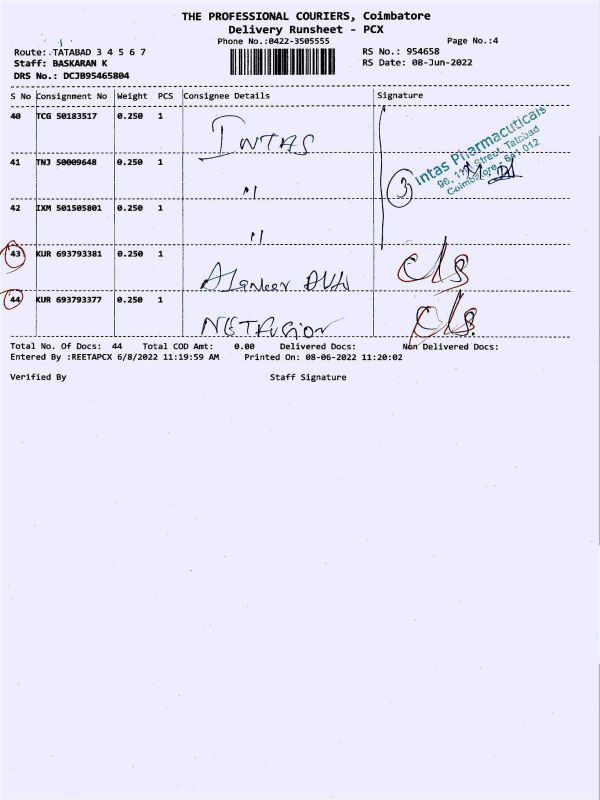 THE PROFESSIONAL COURIERS, Coimbatore
Delivery Runsheet - PCX
Phone No.:0422-3505555 Page No.:4
Route: TATABAD 3 4 5 6 7 RS No.: 954658
Staff: BASKARAN K RS Date: 08-Jun-2022
DRS No.: DCJB95465804
S No Consignment No Weight PCS Consignee Details Signature
40 TCG 50183517 0.250 1 INTAS
Intas Pharmaceuticals
Street, Tatabad
Coimbatore - 641 012
3
41 TNJ 50009648 0.250 1 "
42 IXM 501505801 0.250 1 "
43 KUR 693793381 0.250 1
44 KUR 693793377 0.250 1 NETFUSION
Total No. Of Docs: 44 Total COD Amt: 0.00 Delivered Docs: Non Delivered Docs:
Entered By :REETAPCX 6/8/2022 11:19:59 AM Printed On: 08-06-2022 11:20:02
Verified By Staff Signature